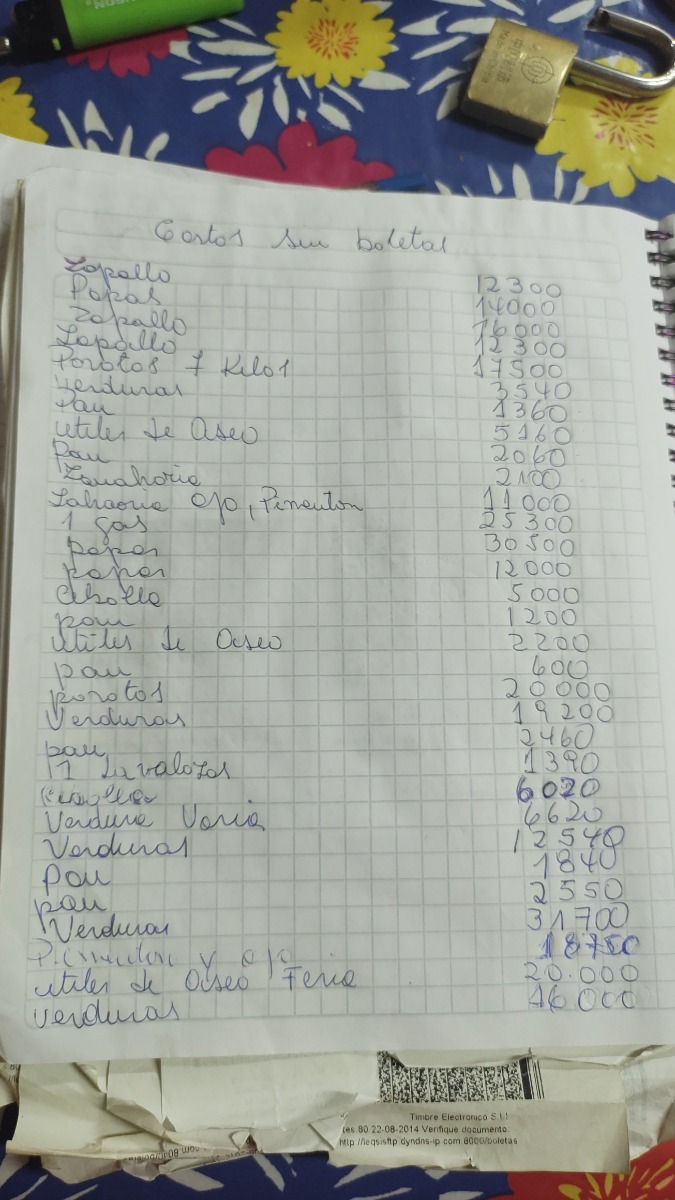 Gastos sin boletas
Zapallo 12300
Papas 14000
Zapallo 16000
Zapallo 12300
Porotos 7 Kilos 17500
Verduras 3540
Pan 1360
utiles de Aseo 5160
Pan 2060
Zanahoria 2100
ajo, Pimenton 11000
1 gas 25300
papas 30500
papas 12000
Cebolla 5000
pan 1200
utiles de Aseo 2200
pan 600
porotos 20000
Verduras 19200
pan 2460
Lavalozas 1390
6020
Verdura Varia 6620
Verduras 12540
Pan 1840
pan 2550
Verduras 31700
Pimenton y ajo 18750
utiles de Aseo Feria 20.000
verduras 16000
Timbre Electronico S.I.I
Res.80 22-08-2014 Verifique documento
http://leqsisftp.dyndns-ip.com:8000/boletas